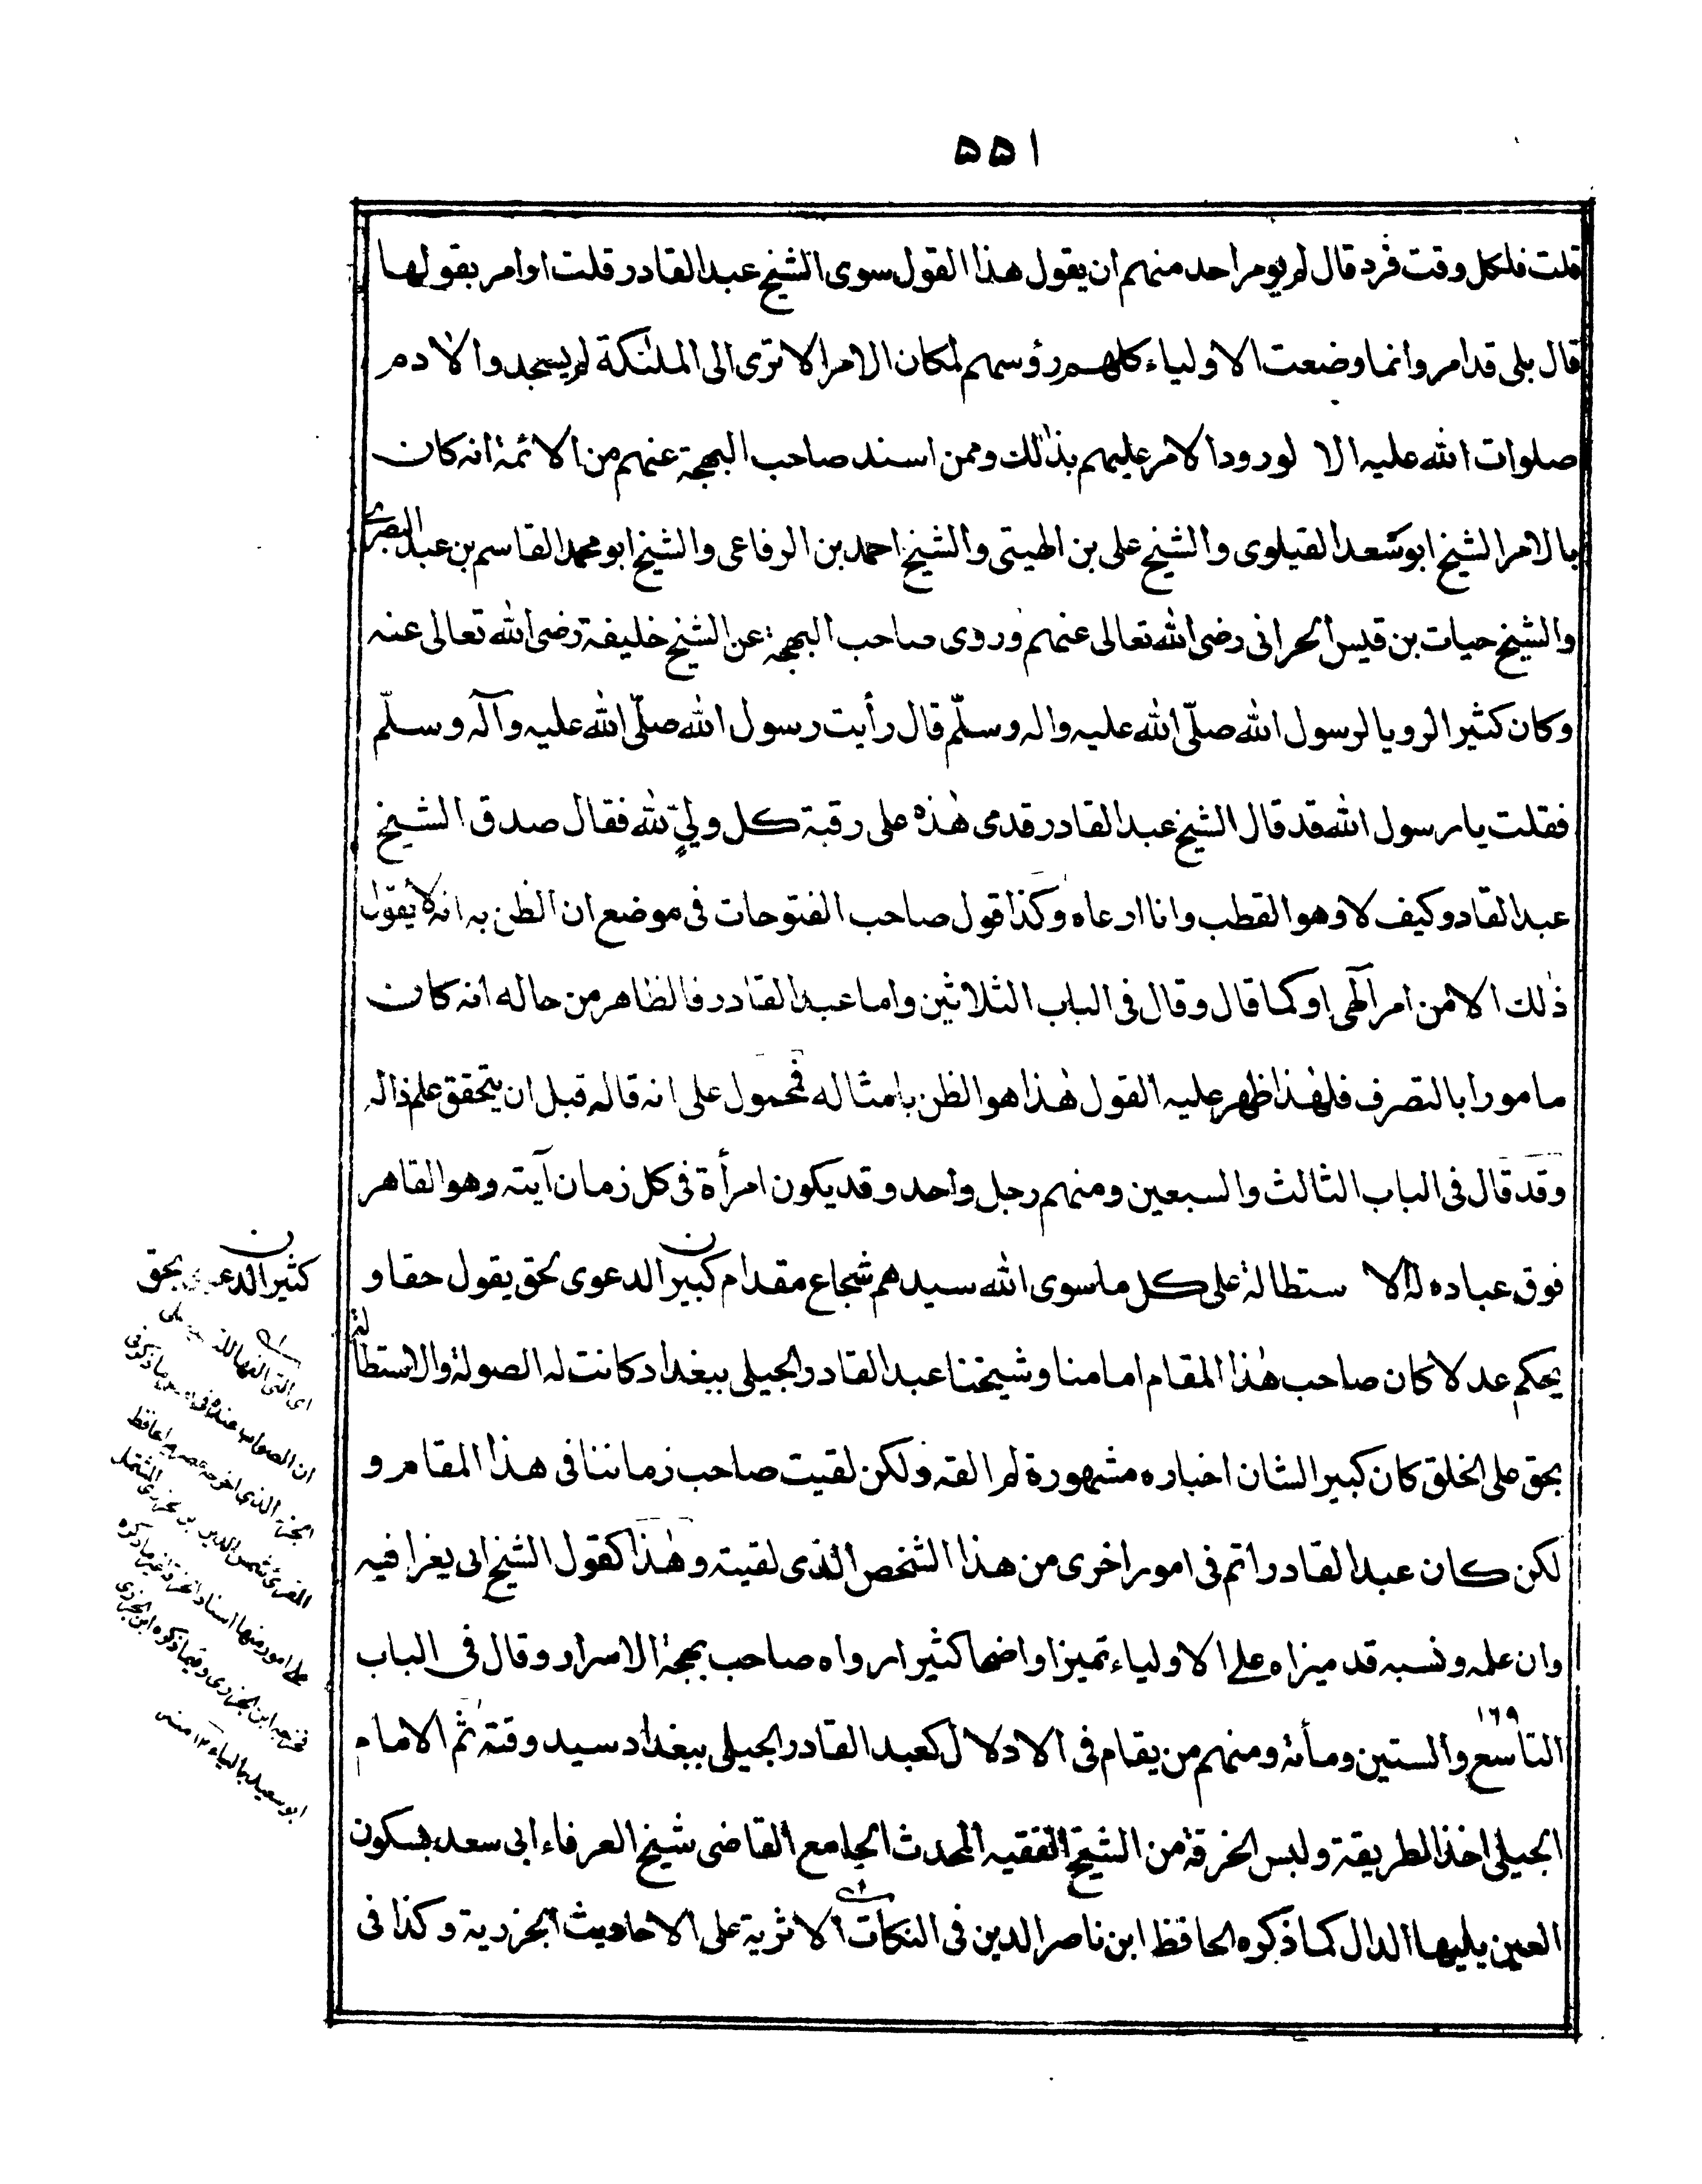 ٥٥١
قلت فلكل وقت فرد قال لم يومر احد منهم ان يقول هذا القول سوى الشيخ عبد القادر قلت اوامر بقولها
قال بلى قد امر وانما وضعت الاولياء كلهم رؤسهم لمكان الامر الا ترى الى الملئكة لم يسجدوا لآدم
صلوات الله عليه الا لورود الامر عليهم بذلك وممن اسند صاحب البهجة عنهم من الائمة انه كان
بالامر الشيخ ابو سعد القيلوى والشيخ على بن الهيتى والشيخ احمد بن الرفاعى والشيخ ابو محمد القاسم بن عبد البصرى
والشيخ حيات بن قيس الحرانى رضى الله تعالى عنهم وروى صاحب البهجة عن الشيخ خليفة رضى الله تعالى عنه
وكان كثير الرويا لرسول الله صلّى الله عليه واله وسلّم قال رأيت رسول الله صلّى الله عليه وآله وسلّم
فقلت يا رسول الله قد قال الشيخ عبد القادر قدمى هذه على رقبة كل وليّ لله فقال صدق الشيخ
عبد القادر وكيف لا وهو القطب وانا ارعاه وكذا قول صاحب الفتوحات فى موضع ان الظن به انه لا يقول
ذلك الا من امر آلهى او كما قال وقال فى الباب الثلاثين واما عبد القادر فالظاهر من حاله انه كان
مامورا بالتصرف فلهذا ظهر عليه القول هذا هو الظن بامثاله فمحمول على انه قاله قبل ان يتحقق علم ذاله
وقد قال فى الباب الثالث والسبعين ومنهم رجل واحد وقد يكون امرأة فى كل زمان آيته وهو القاهر
فوق عباده له الا ستطالة على كل ما سوى الله سيدهم شجاع مقدام كبير الدعوى بحق يقول حقا و
يحكم عدلا كان صاحب هذا المقام امامنا وشيخنا عبد القادر الجيلى ببغداد كانت له الصولة والاستطالة
بحق على الخلق كان كبير الشان اخباره مشهورة لم القه ولكن لقيت صاحب زماننا فى هذا المقام و
لكن كان عبد القادر اتم فى امور اخرى من هذا الشخص الذى لقيته وهذا كقول الشيخ ابى يعزا فيه
وان علمه ونسبه قد ميزاه على الاولياء تميزا واضحا كثيرا رواه صاحب بهجة الاسرار وقال فى الباب
١٦٩
التاسع والستين ومأئة ومنهم من يقام فى الادلال كعبد القادر الجيلى ببغداد سيد وقته ثم الامام
الجيلى اخذ الطريقة ولبس الخرقة من الشيخ الفقيه المحدث الجامع القاضى شيخ العرفاء ابى سعد بسكون
العين يليها الدال كما ذكره الحافظ ابن ناصر الدين فى النكات الاثرية على الاحاديث الجزرية وكذا فى
ن
كثير الدعوى بحق
ان الصواب عنده فى
الجزء الذى اخرجه عصريه الحافظ
المقرئ شمس الدين بن الجزرى المشتمل
على امور منها اسناد الخرقة
ابن الجزرى وفيما ذكره ابن الجزرى
ابو سعيد بالياء ١٢ منه